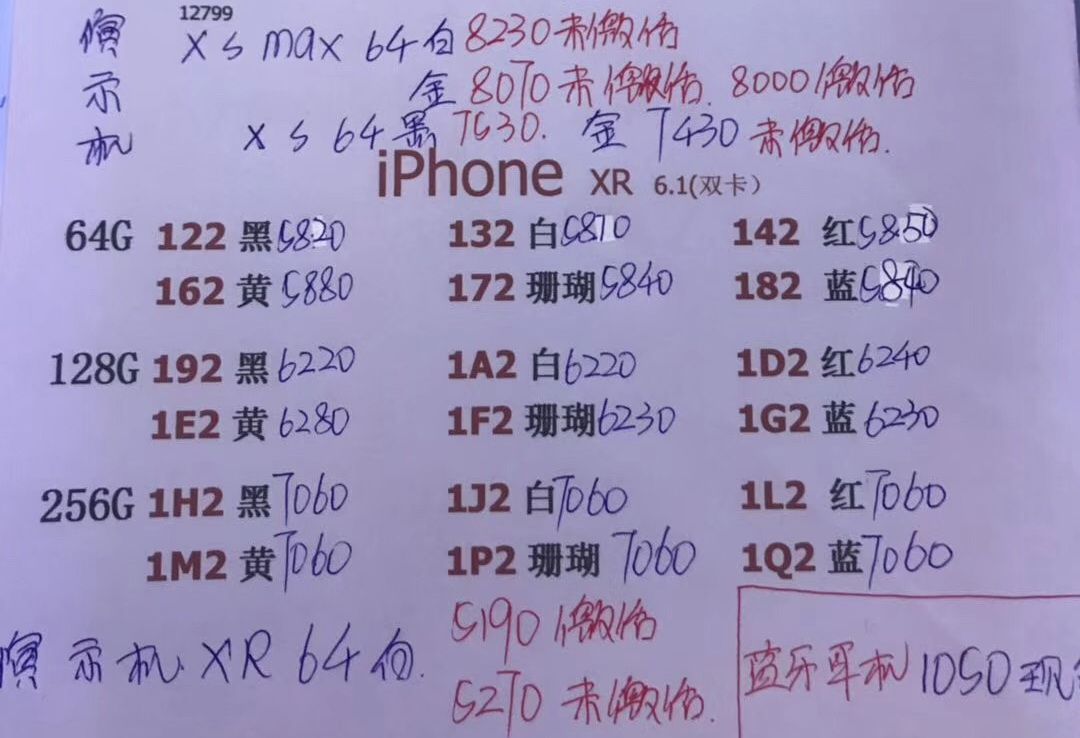 12799
演示机
XS max 64白8230未激活
金8070未激活. 8000激活
XS 64黑7530. 金7430未激活.
iPhone XR 6.1(双卡)
64G 122 黑5820 132 白5870 142 红5850
162 黄5880 172 珊瑚5840 182 蓝5840
128G 192 黑6220 1A2 白6220 1D2 红6240
1E2 黄6280 1F2 珊瑚6230 1G2 蓝6230
256G 1H2 黑7060 1J2 白7060 1L2 红7060
1M2 黄7060 1P2 珊瑚7060 1Q2 蓝7060
演示机XR 64白. 5190激活
5270未激活.
蓝牙耳机1050现